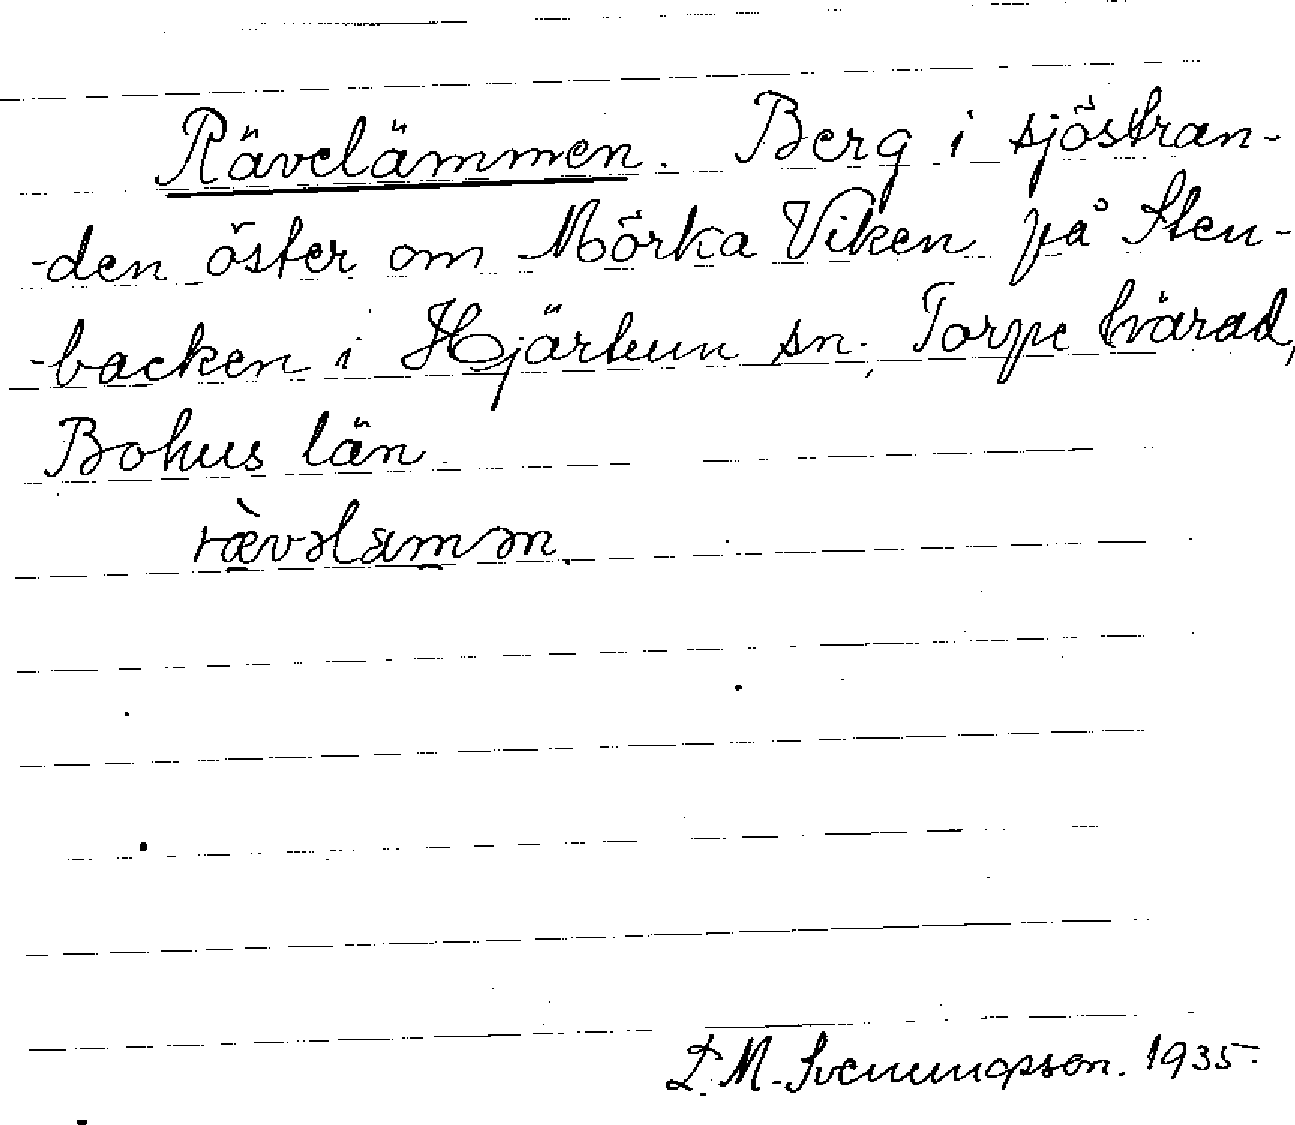 Rävelämmen. Berg i sjöstran-
-den öster om Mörka Viken på Sten-
-backen i Hjärtum sn, Torpe härad,
Bohus län
rævəlamən
D. M. Svenungsson. 1935.